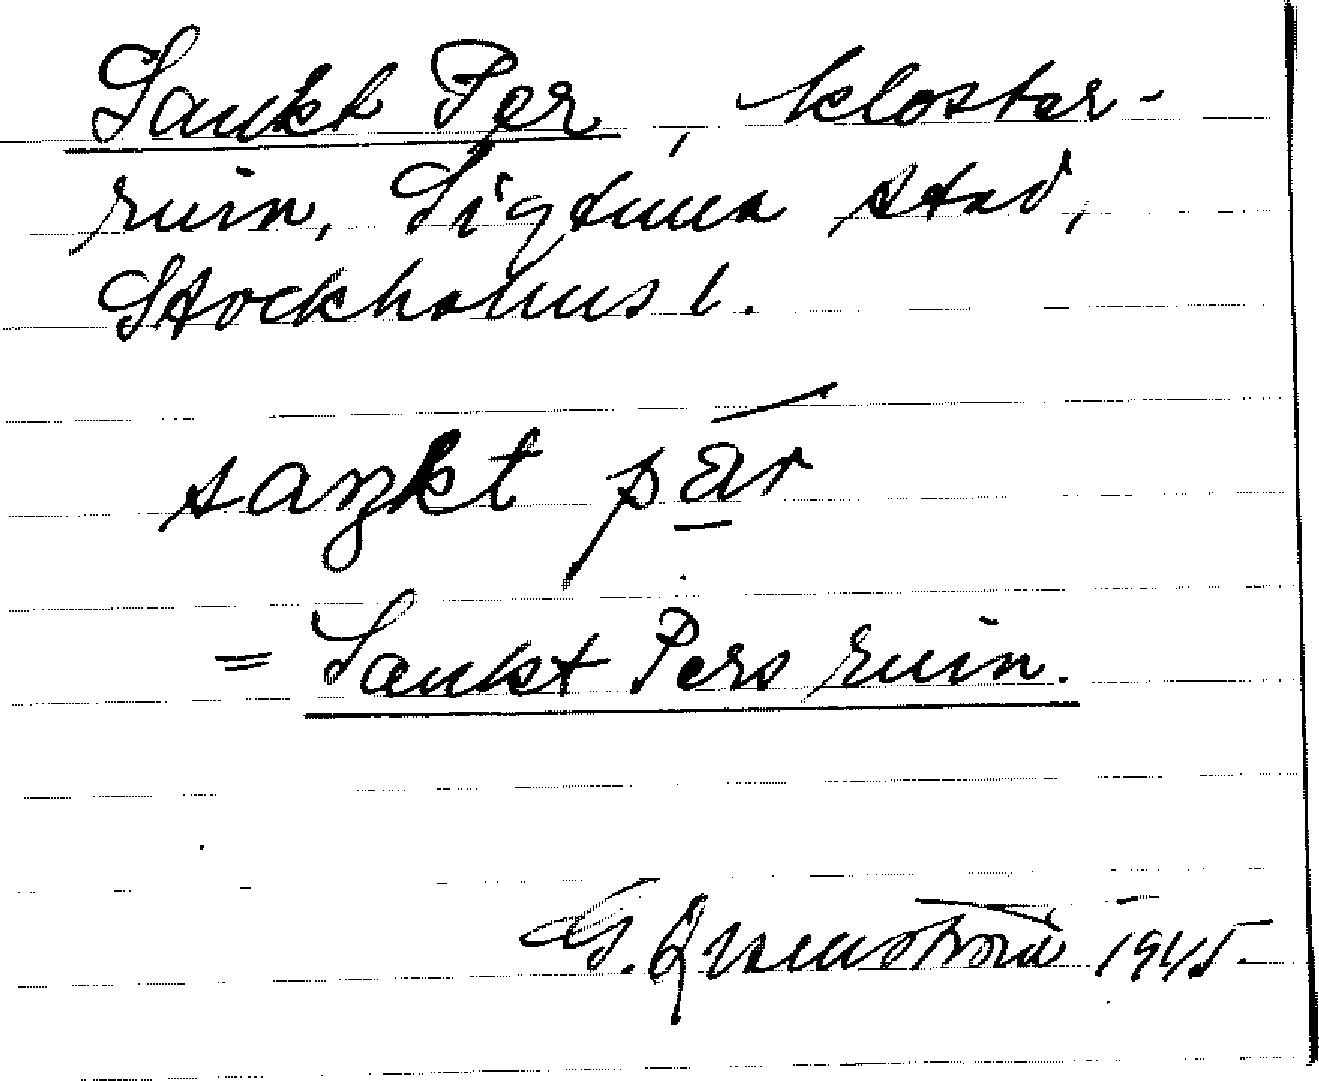 Sankt Per, kloster-
ruin, Sigtuna stad,
Stockholms l.
saŋkt pär
= Sankt Pers ruin.
G. Qvarnström 1945